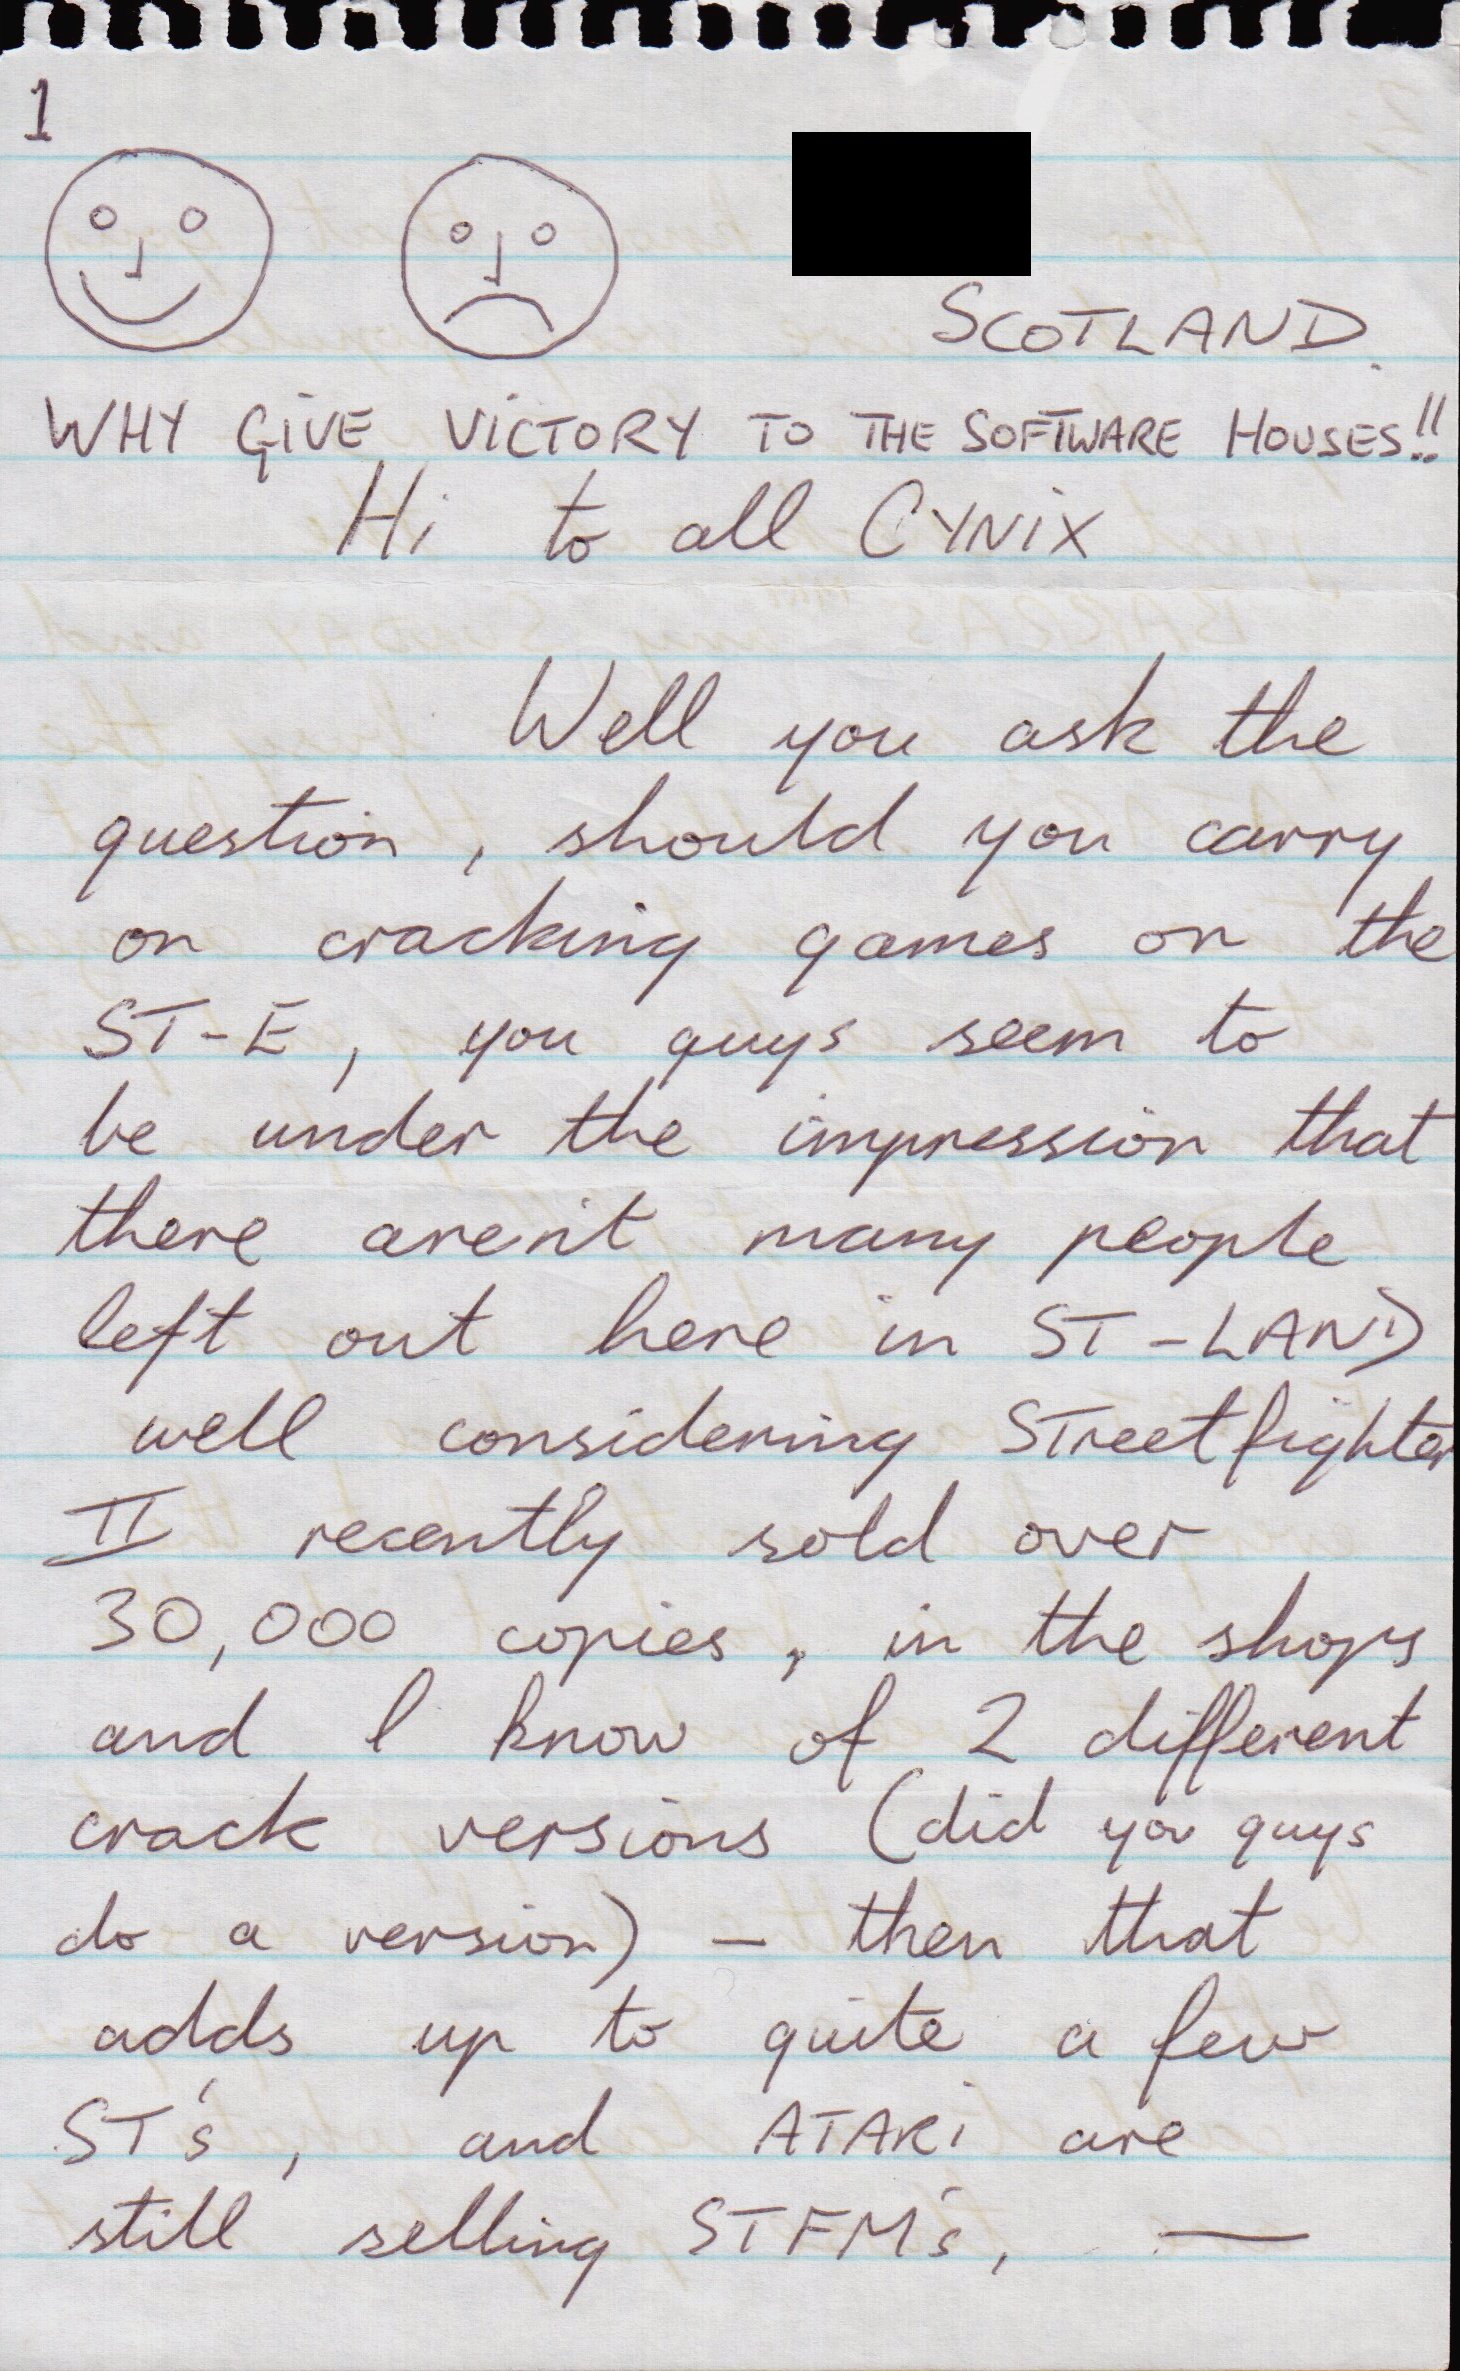 1
SCOTLAND.
WHY GIVE VICTORY TO THE SOFTWARE HOUSES!!
Hi to all CYNIX
Well you ask the
question, should you carry
on cracking games on the
ST-E, you guys seem to
be under the impression that
there aren't many people
left out here in ST-LAND
well considering Streetfighter
II recently sold over
30,000 copies, in the shops
and I know of 2 different
crack versions (did you guys
do a version) - then that
adds up to quite a few
ST's, and ATARI are
still selling STFM's, —